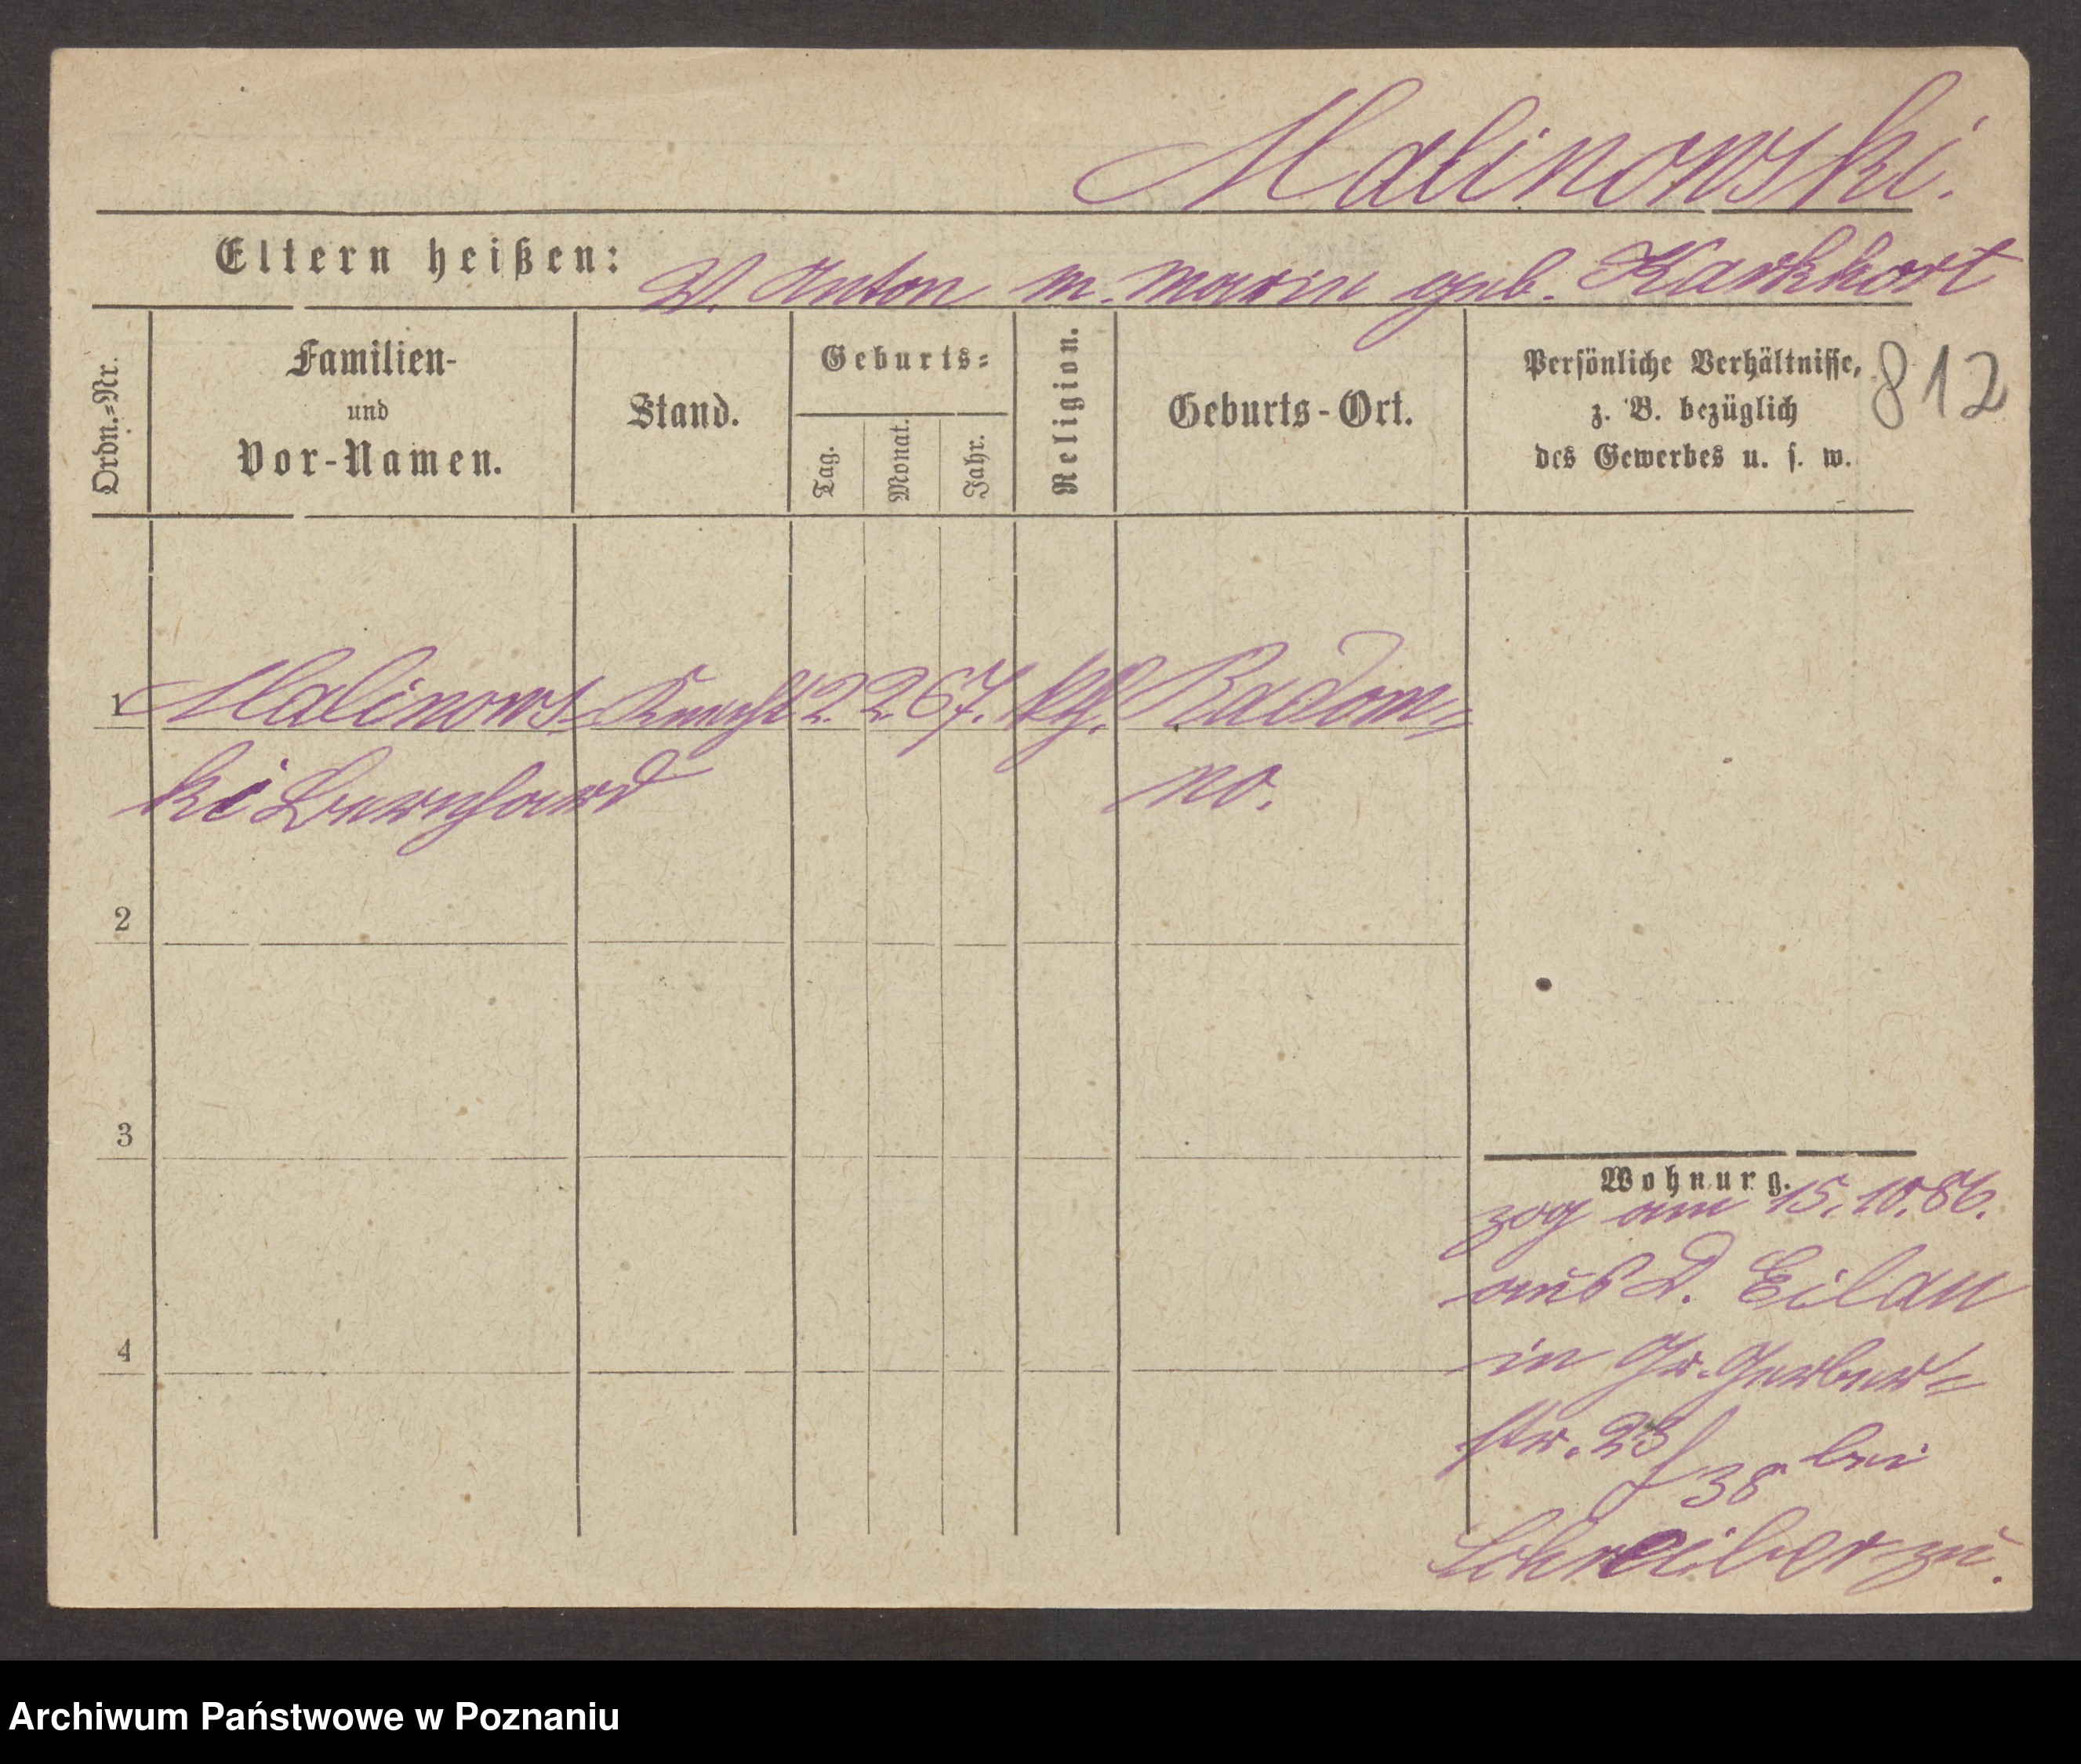 Malinowski.
Eltern heißen: V. Anton M. Marie geb. Karkhort
Ordn.=Nr.
Familien-
und
Vor-Namen.
Stand.
Geburts=
Tag.
Monat.
Jahr.
Religion.
Geburts-Ort.
Persönliche Verhältnisse,
z. B. bezüglich
des Gewerbes u. s. w.
812
1 Malinows= Knecht 2. 2. 67. kth. Radom=
ki Bernhard no.
2
3
4
Wohnung.
zog am 15.10.86.
aus D. Eilau
in Gr. Gerber=
str. 23/38 bei
Schreiber zu.
Archiwum Państwowe w Poznaniu